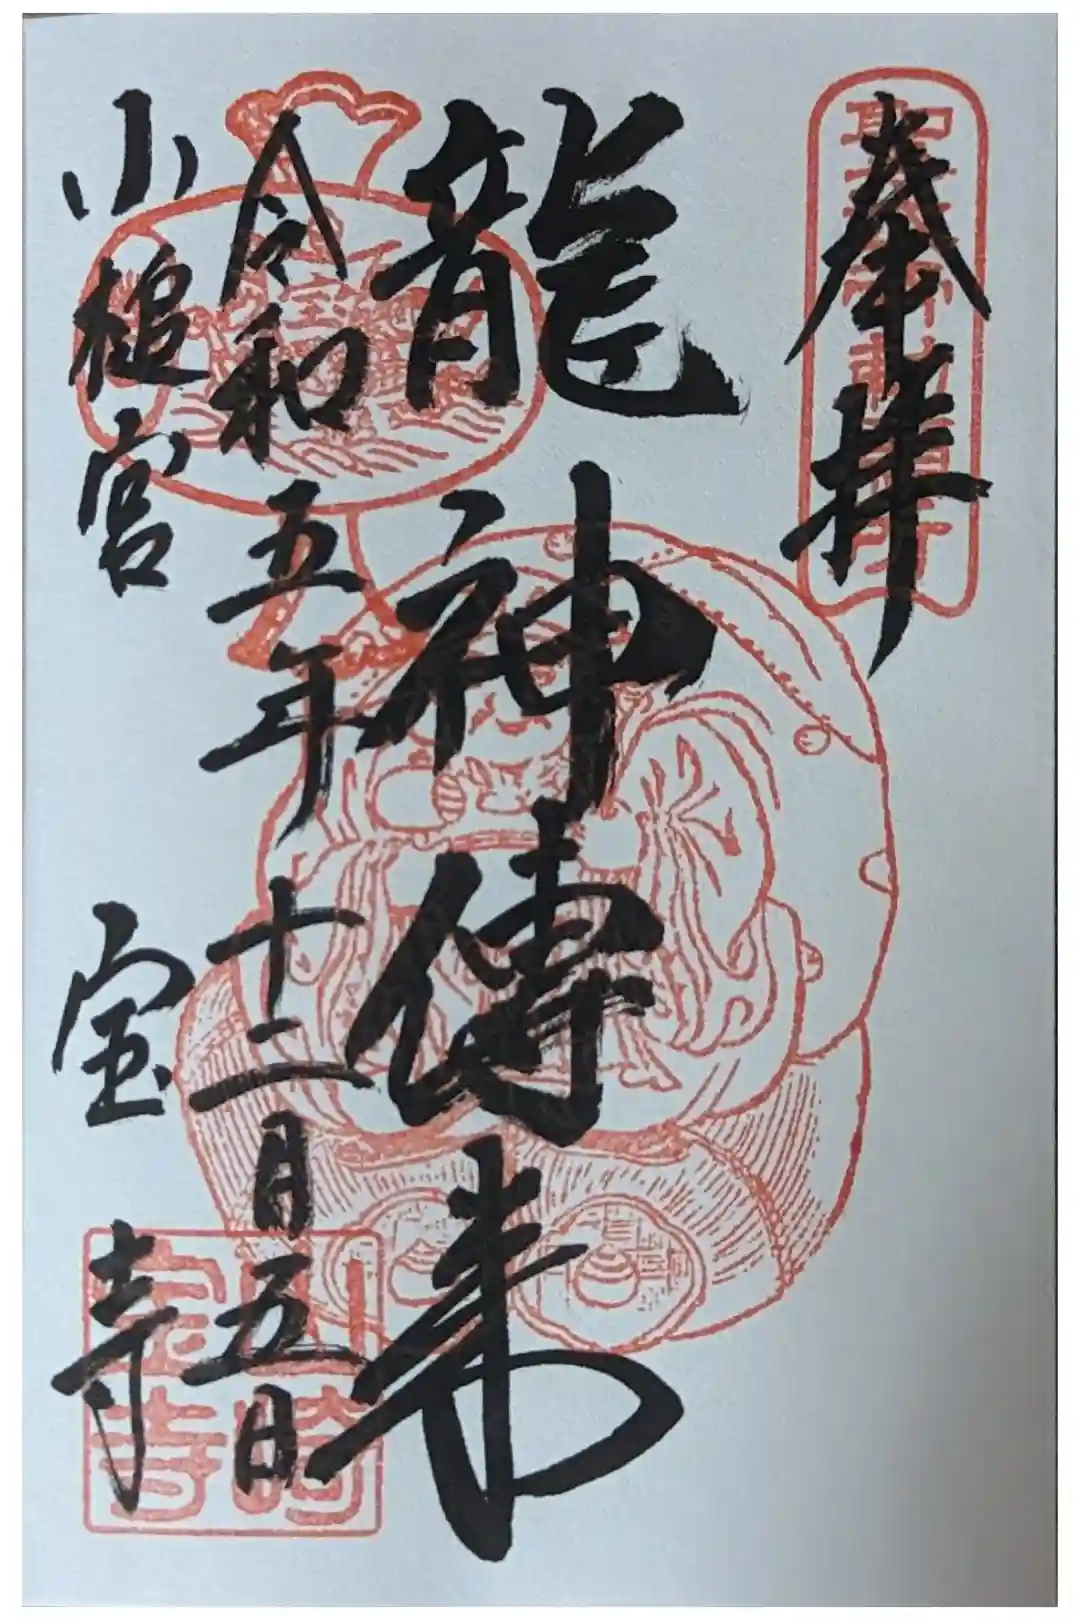 奉拝
龍神傳来
令和五年十二月五日
小槌宮 宝寺
山崎宝寺